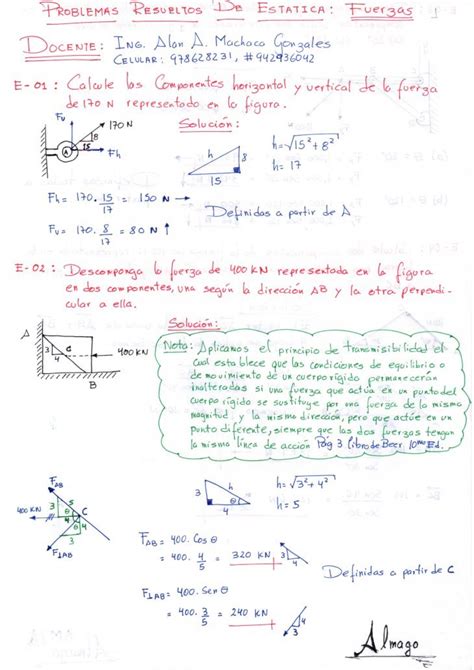 PROBLEMAS RESUELTOS DE ESTATICA: Fuerzas 1
DOCENTE: ING. Alan A. Machaca Gonzales
CELULAR: 978628231, #942936042
E-01: Calcule las Componentes horizontal y vertical de la fuerza
de 170 N representado en la figura.
Fv
170 N
8
15
A
Fh
Solución:
h
8
15
h=√15²+8²
h= 17
Fh = 170. 15/17 = 150 N →
Fv = 170. 8/17 = 80 N ↑
Definidas a partir de A
E-02: Descomponga la fuerza de 400 KN representada en la figura
en dos componentes, una según la dirección AB y la otra perpendi-
cular a ella.
A
3
4
C
400 KN
B
Solución:
Nota: Aplicamos el principio de transmisibilidad el
cual establece que las condiciones de equilibrio o
de movimiento de un cuerpo rígido permanecerán
inalteradas si una fuerza que actúa en un punto del
cuerpo rígido se sustituye por una fuerza de la misma
magnitud y la misma dirección, pero que actúe en un
punto diferente, siempre que las dos fuerzas tengan
la misma línea de acción Pág 3 libro de Beer. 10ma Ed.
FAB
5
3
θ
4
C
400 KN
4
θ
3
F⊥AB
3
h
θ
4
h=√3²+4²
h= 5
FAB = 400. Cos θ
= 400. 4/5 = 320 KN
3
4
F⊥AB = 400. Sen θ
= 400. 3/5 = 240 KN
4
3
Definidas a partir de C
Almago